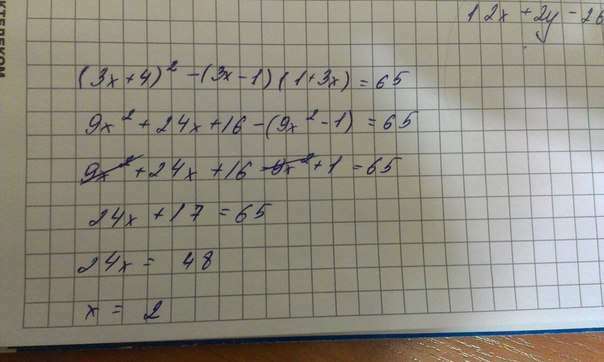 КТЕЛЕКОМ
12x + 2y - 26
(3x + 4)² - (3x - 1)(1 + 3x) = 65
9x² + 24x + 16 - (9x² - 1) = 65
9x² + 24x + 16 - 9x² + 1 = 65
24x + 17 = 65
24x = 48
x = 2